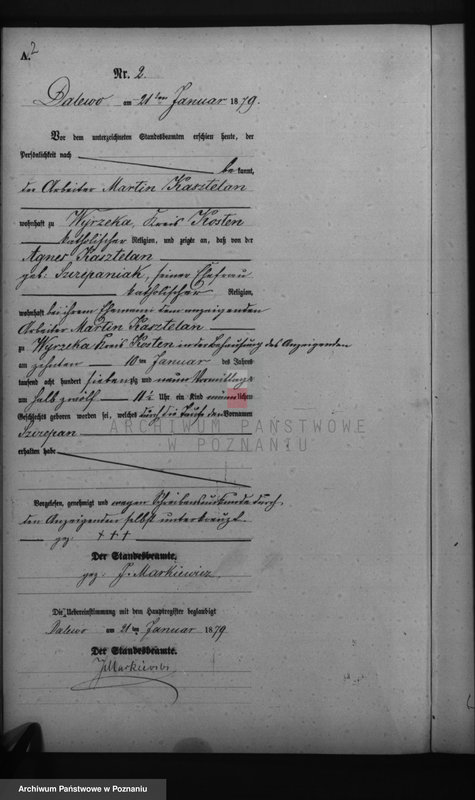 A. 2
Nr. 2.
Dalewo am 21ten Januar 1879.
Vor dem unterzeichneten Standesbeamten erschien heute, der
Persönlichkeit nach
bekannt,
der Arbeiter Martin Kasztelan
wohnhaft zu Wyrzeka, Kreis Kosten
katholischer Religion, und zeigte an, daß von der
Agnes Kasztelan
geb: Szczepaniak, seiner Ehefrau
katholischer Religion,
wohnhaft bei ihrem Ehemann dem anzeigenden
Arbeiter Martin Kasztelan
zu Wyrzeka Kreis Kosten in der Behausung des Anzeigenden
am zehnten 10ten Januar des Jahres
tausend acht hundert siebenzig und neun Vormittags
um halb zwölf 11½ Uhr ein Kind männlichen
Geschlechts geboren worden sei, welches durch die Taufe den Vornamen
Szczepan
erhalten habe
Vorgelesen, genehmigt und wegen Schreibensunkunde durch
den Anzeigenden selbst unterkreuzt
gez: +++
Der Standesbeamte.
gez: J. Markiewicz.
Die Uebereinstimmung mit dem Hauptregister beglaubigt
Dalewo am 21ten Januar 1879
Der Standesbeamte.
J Markiewicz
ARCHIWUM PAŃSTWOWE
W POZNANIU
Archiwum Państwowe w Poznaniu